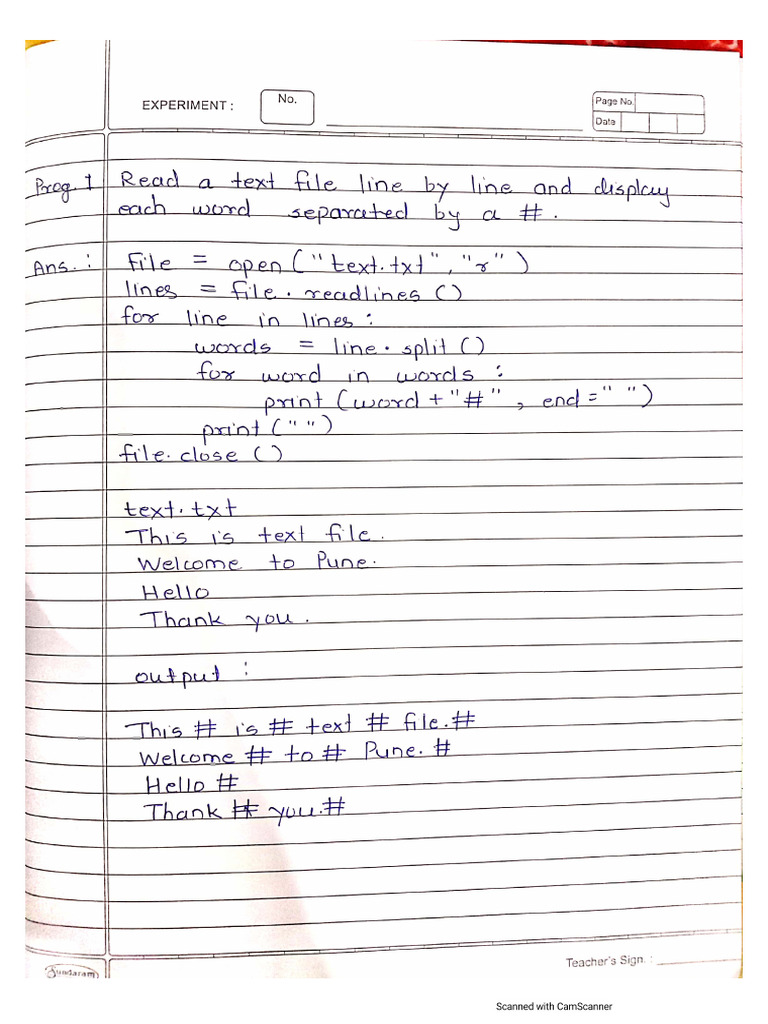 EXPERIMENT : No.
Page No.
Date
Prog. 1 Read a text file line by line and display
each word separated by a #.
Ans. : file = open ("text.txt", "r")
lines = file.readlines ()
for line in lines :
words = line.split ()
for word in words :
print (word + "#" , end = " ")
print (" ")
file.close ()
text.txt
This is text file.
Welcome to Pune.
Hello
Thank you.
output :
This # is # text # file.#
Welcome # to # Pune. #
Hello #
Thank # you.#
Sundaram
Teacher's Sign. :
Scanned with CamScanner